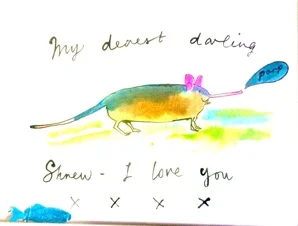 My dearest darling
parp
Shrew - I love you
x x x x